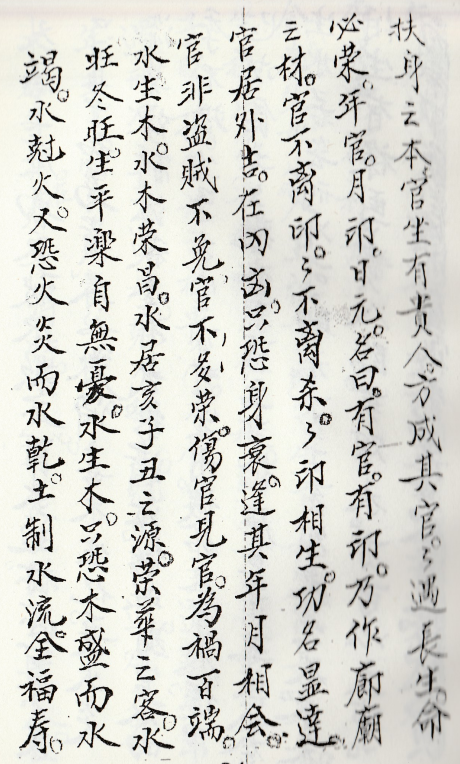 扶身之本。官坐有貴人。方成其官。々遇長生。命
必荣。年官。月印。日元。名曰。有官。有印。乃作廊廟
之材。官不离印。々不离杀。々印相生。功名显達。
官居外吉。在内凶。只恐身衰。逢其年月相会。
官非盗贼不免。官不多荣。傷官見官。為禍百端。
水生木。水木荣昌。水居亥子丑之源。荣華之客。水
旺冬旺。生平楽自無憂。水生木。只恐木盛而水
竭。水尅火。又恐火炎而水乾。土制水流。全福寿。